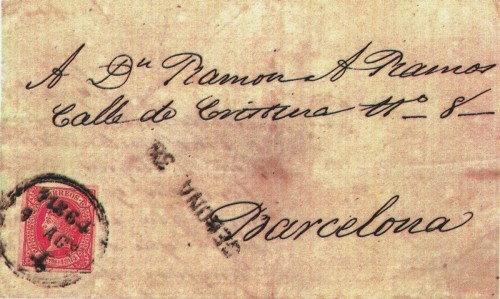 A Dn Ramon A Ramos
Calle de Cristina No 8
GERONA
Barcelona
CORREOS